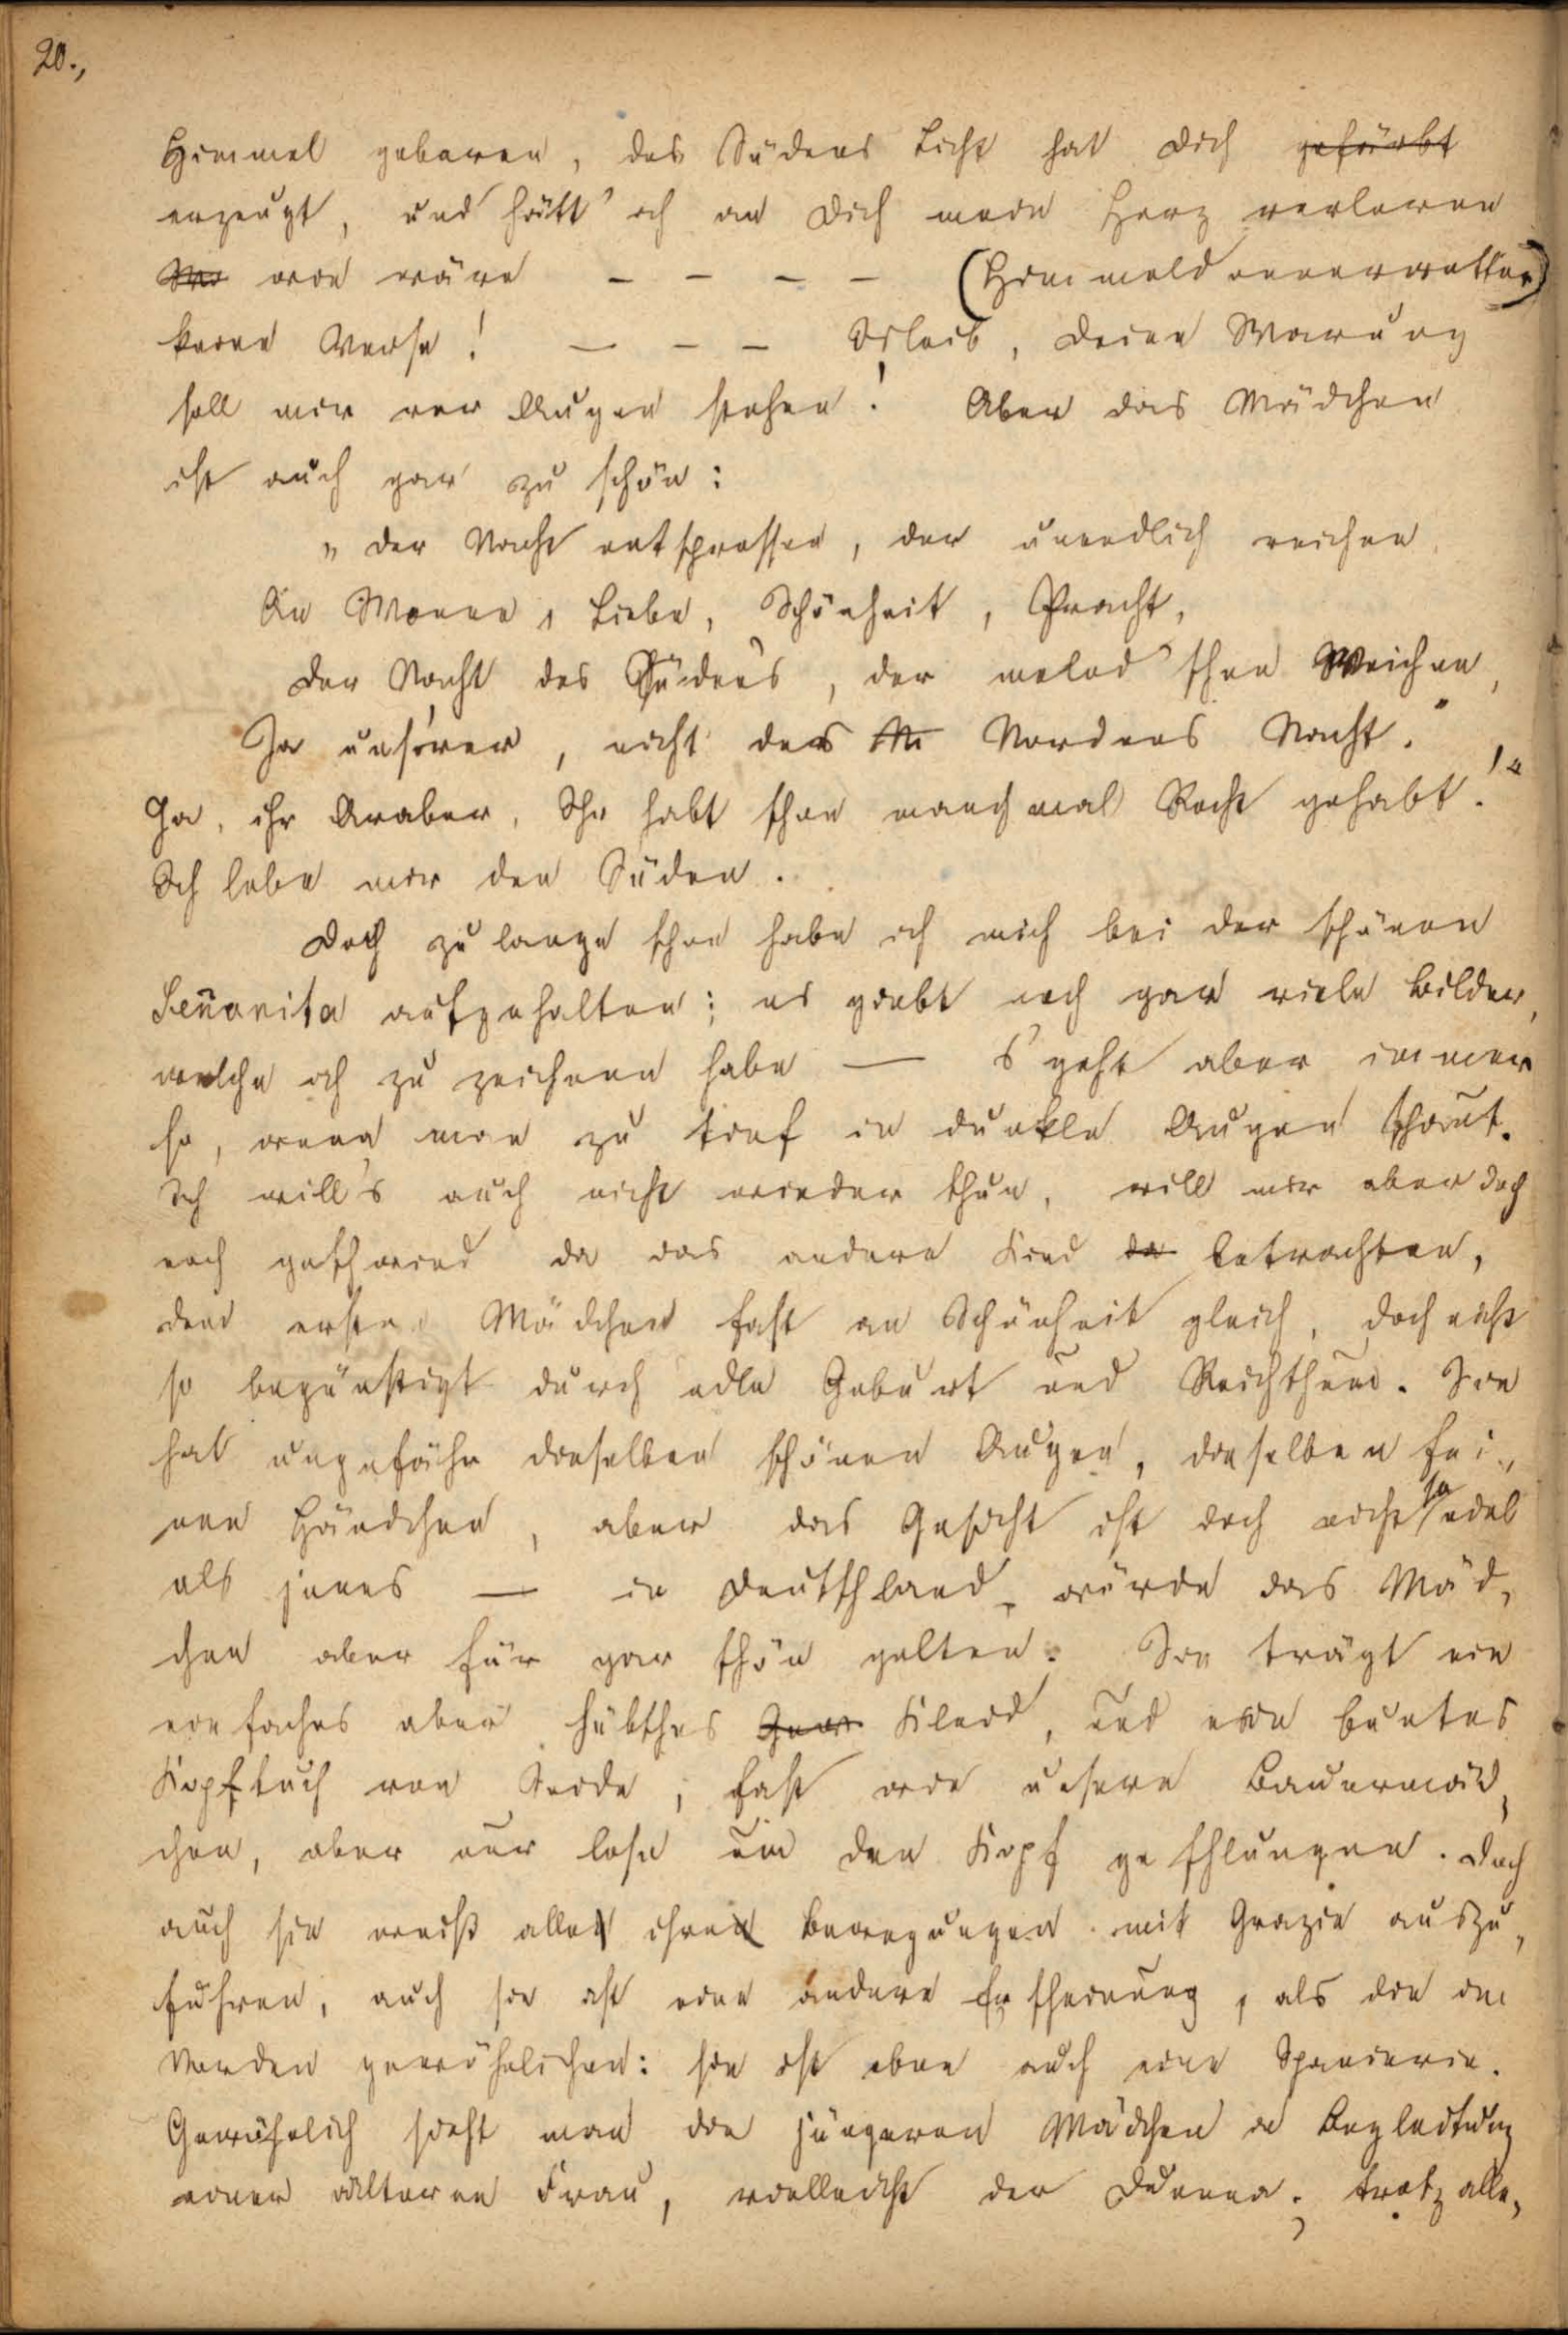 20.,
Himmel geboren, des Südens Licht hat Dich gefärbt
erzeugt, und hätt' ich an Dich mein Herz verloren
wie wäre – – – – (Himmeldonnerwetter)
keine Verse! – – – Isleib, Deine Warnung
soll mir vor Augen stehen! Aber das Mädchen
ist auch gar zu schön:
„Der Nacht entsprossen, der unendlich reichen,
An Wonne, Liebe, Schönheit, Pracht,
Der Nacht des Südens, der melod'schen Weichen,
Ja unsrer, nicht des Nordens Nacht."
Ja, ihr Araber, Ihr habt schon manchmal Recht gehabt!"
Ich lobe mir den Süden.
Doch zu lange schon habe ich mich bei der schönen
Señorita aufgehalten; es giebt noch gar viele Bilder,
welche ich zu zeichnen habe — 's geht aber immer
so, wenn man zu tief in dunkle Augen schaut.
Ich will's auch nicht wieder thun, will mir aber doch
noch geschwind da das andere Kind da betrachten,
dem ersten Mädchen fast an Schönheit gleich, doch nicht
so begünstigt durch edle Geburt und Reichthum. Sie
hat ungefähr dieselben schönen Augen, dieselben fei-
nen Händchen, aber das Gesicht ist doch nicht so edel
als jenes — in Deutschland würde das Mäd-
chen aber für gar schön gelten. Sie trägt ein
einfaches aber hübsches Kleid, und ein buntes
Kopftuch von Seide, fast wie unsere Bauermäd-
chen, aber nur lose um den Kopf geschlungen. Doch
auch sie weiß alle ihre Bewegungen mit Grazie auszu-
führen, auch sie ist eine andere Erscheinung, als die im
Norden gewöhnlichen: sie ist eben auch eine Spanierin.
Gewöhnlich sieht man die jüngeren Mädchen in Begleitung
einer älteren Frau, vielleicht der Duenna; trotz alle-